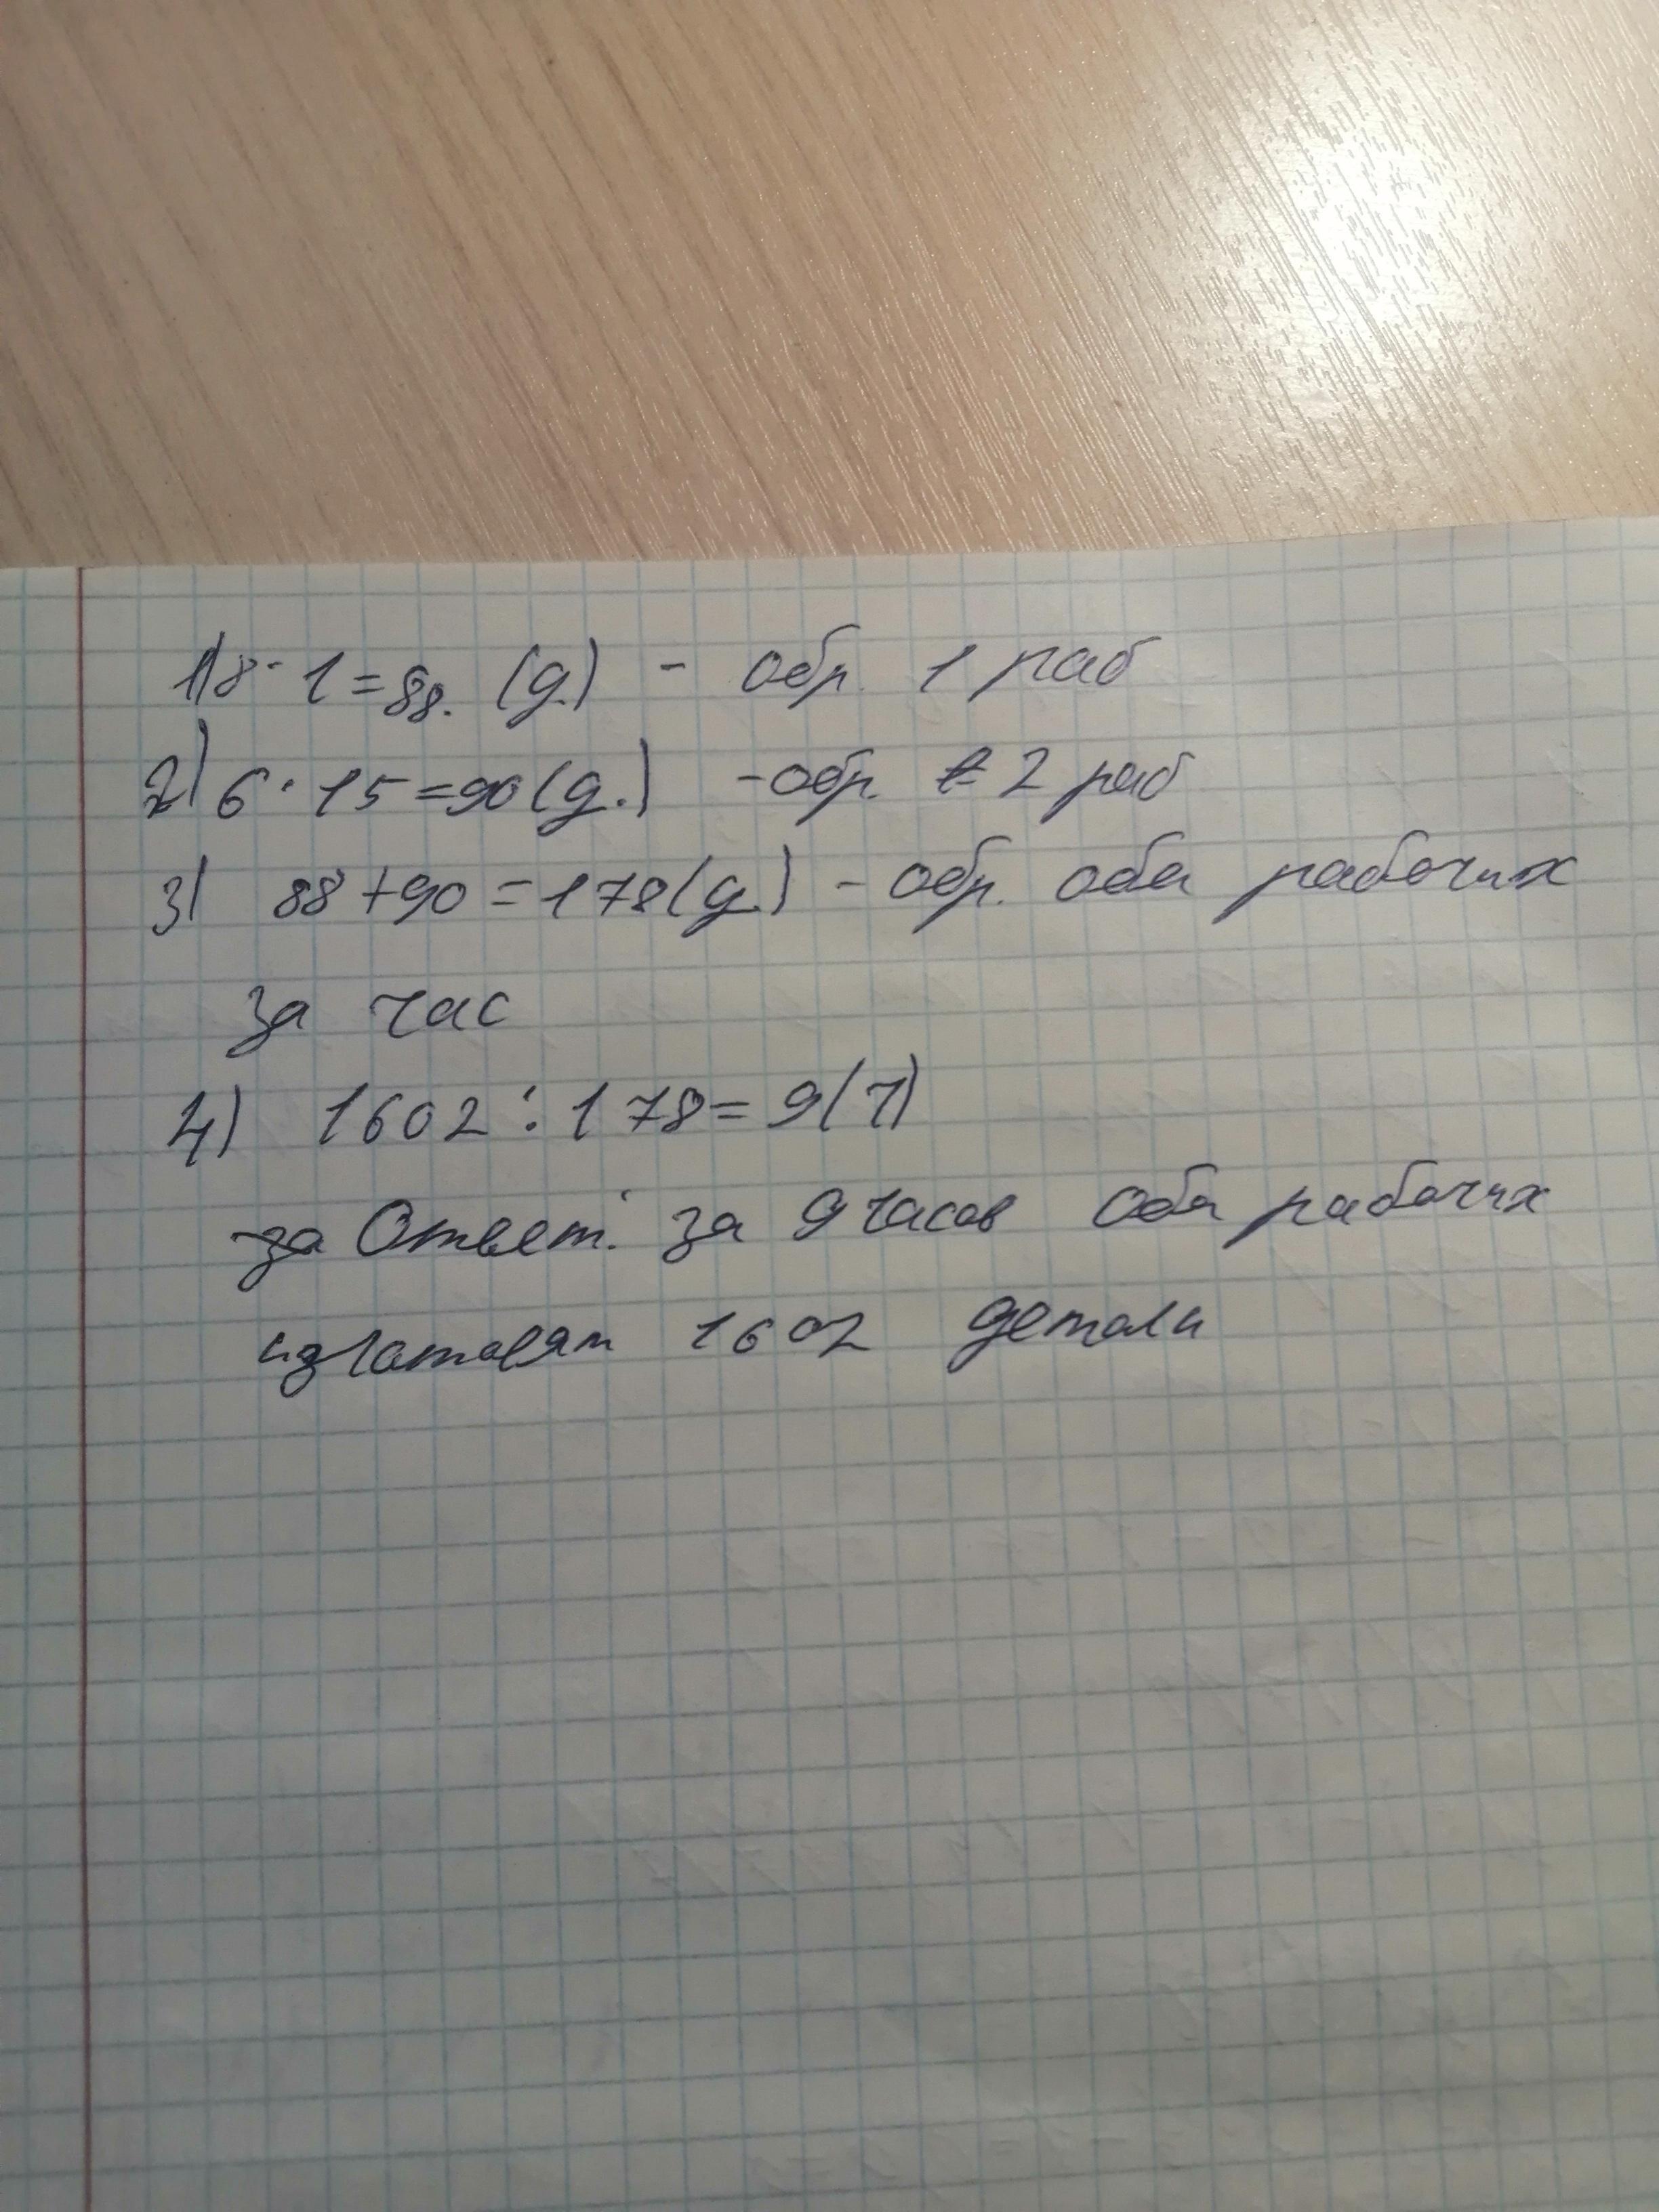 1) 8 · 1 = 88. (д.) - обр. 1 раб
2) 6 · 15 = 90 (д.) - обр. 2 раб
3) 88 + 90 = 178 (д.) - обр. оба рабочих
за час
4) 1602 : 178 = 9 (7)
за Ответ: за 9 часов оба рабочих
изготовят 1602 детали